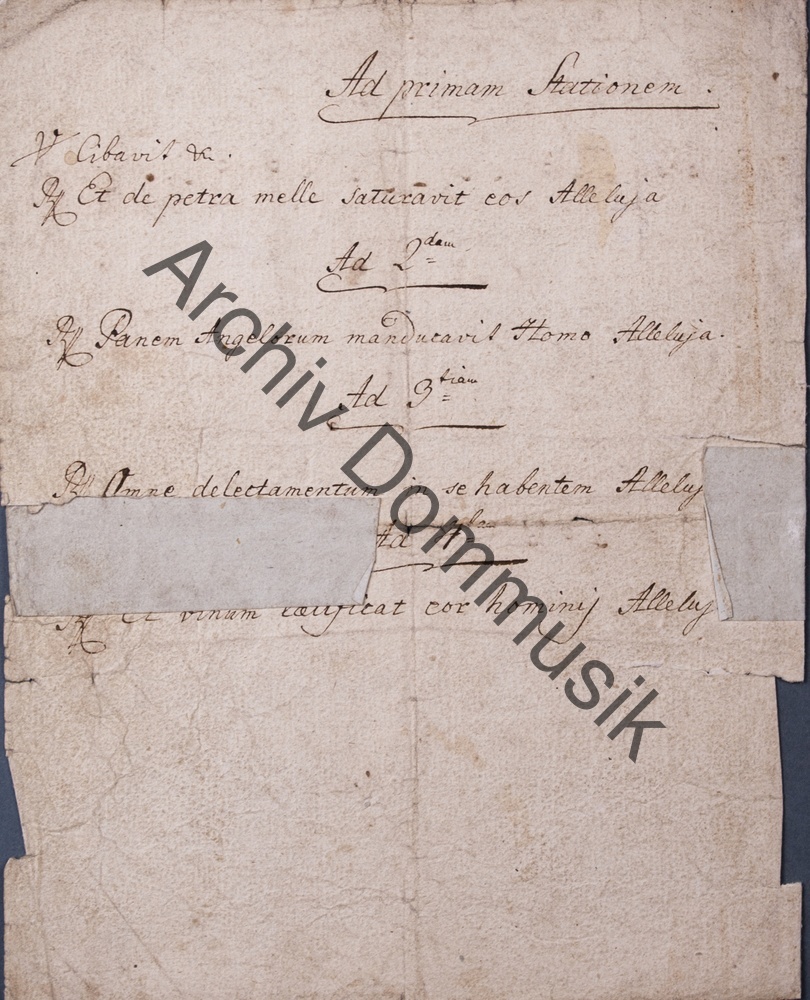 Ad primam Stationem.
℣ Cibavit &c.
℟ Et de petra melle saturavit eos Alleluja
Ad 2dam
℟ Panem Angelorum manducavit Homo Alleluja.
Ad 3tiam
℟ Omne delectamentum in se habentem Alleluj
Ad 4tam
℟ Et vinum lætificat cor hominis Alleluj
Archiv Dommusik